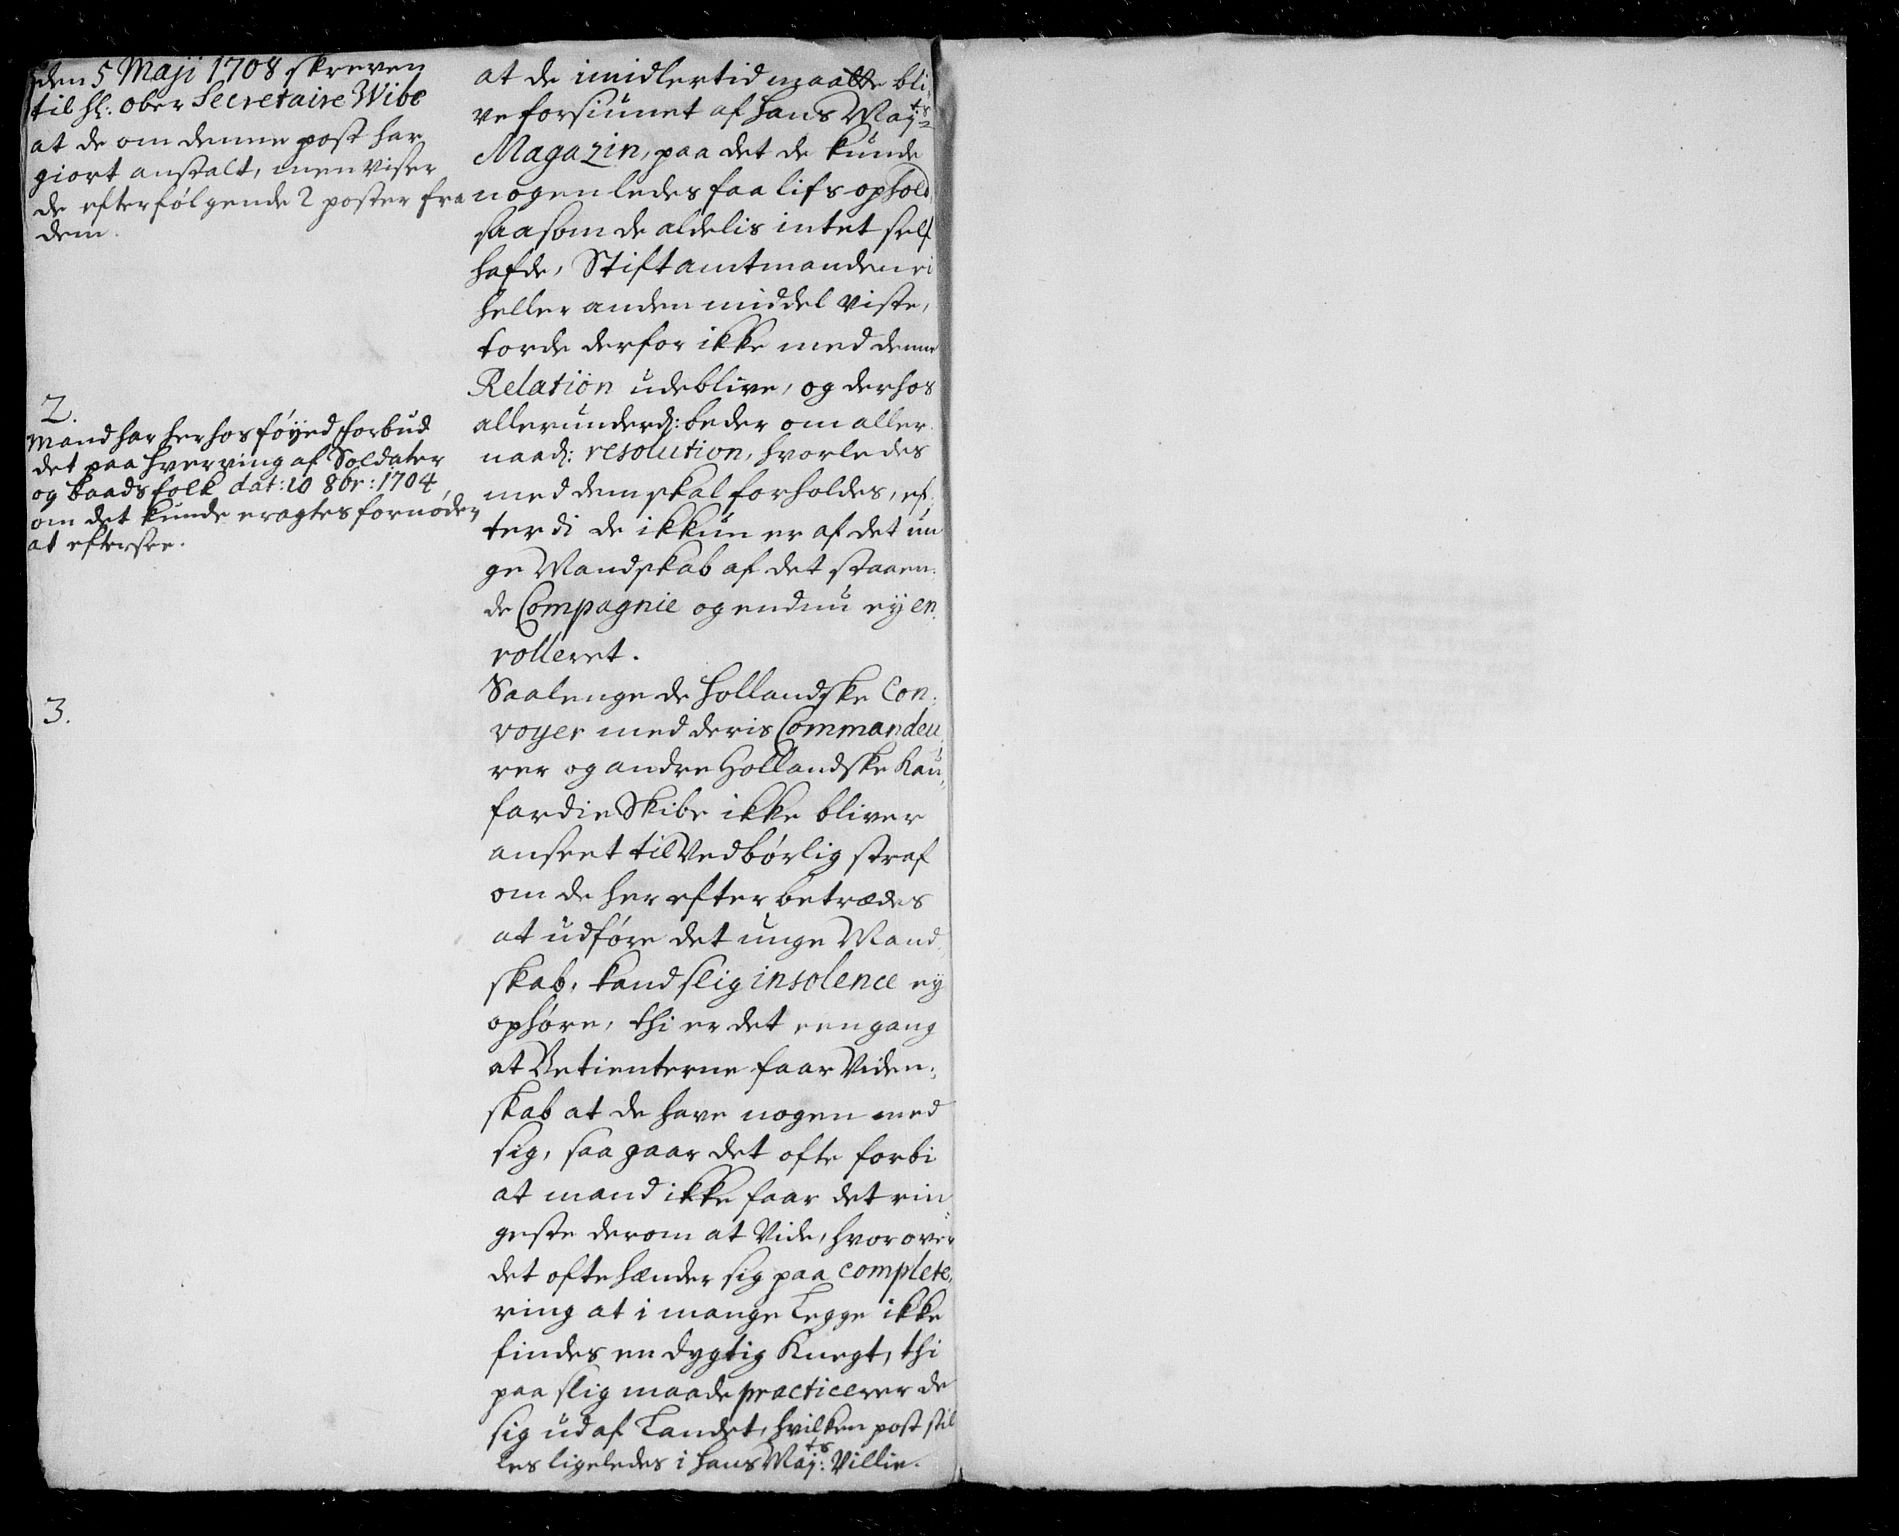 den 5 Maji 1708 skreven
til hl: Ober Secretaire Wibe
at de om denne post har
giort anstalt, men viser
de efterfølgende 2 poster fra
dem.
2.
Mand har herhos føyed forbud
det paa hverving af Soldater
og baadsfolk dat: 10 8br: 1704
om det kunde eragtes fornøden
at eftersee.
3.
at de imidlertid maatte bli
ve forsiunet af hans May.ts
Magazin, paa det de kunde
nogenledes faa lifs ophold
saasom de aldelis intet self
hafde, Stiftamtmanden ei
heller anden middel viste,
torde derfor ikke med denne
Relation udeblive, og derhos
allerunderd: beder om aller
naad: resolution, hvorledes
med dem skal forholdes, ef
terdi de ikkun er af det un
ge Mandskab af det staaen:
de Compagnie og endnu ey en
rolleret.
Saalenge de Hollandske Con:
voyer med deris Commandeu
rer og andre Hollandske Kau
fardie Skibe ikke bliver
anseet til Vedbørlig straf
om de her efter betrædes
at udføre det unge Mand
skab, kand slig insolence ey
ophøre, thi er det een gang
at Betienterne faar Viden:
skab at de have nogen med
sig, saa gaar det ofte forbi
at mand ikke faar det rin
geste derom at Vide, hvorover
det ofte hænder sig paa complete
ring at i mange Legge ikke
findes en dygtig Knegt, thi
paa slig maade practicerer de
sig ud af Landet, hvilken post stil
les ligeledes i hans May.ts Villie.